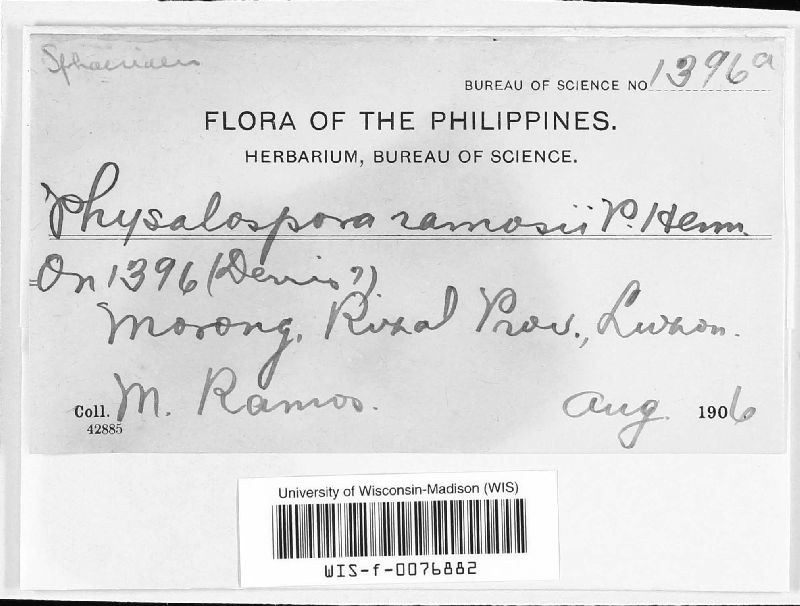 Sphaeriaceae
BUREAU OF SCIENCE NO 1396a
FLORA OF THE PHILIPPINES.
HERBARIUM, BUREAU OF SCIENCE.
Physalospora ramosii P. Henn.
On 1396 (Derris?)
Morong, Rizal Prov., Luzon.
Coll. M. Ramos. Aug. 1906
42885
University of Wisconsin-Madison (WIS)
WIS-f-0076882